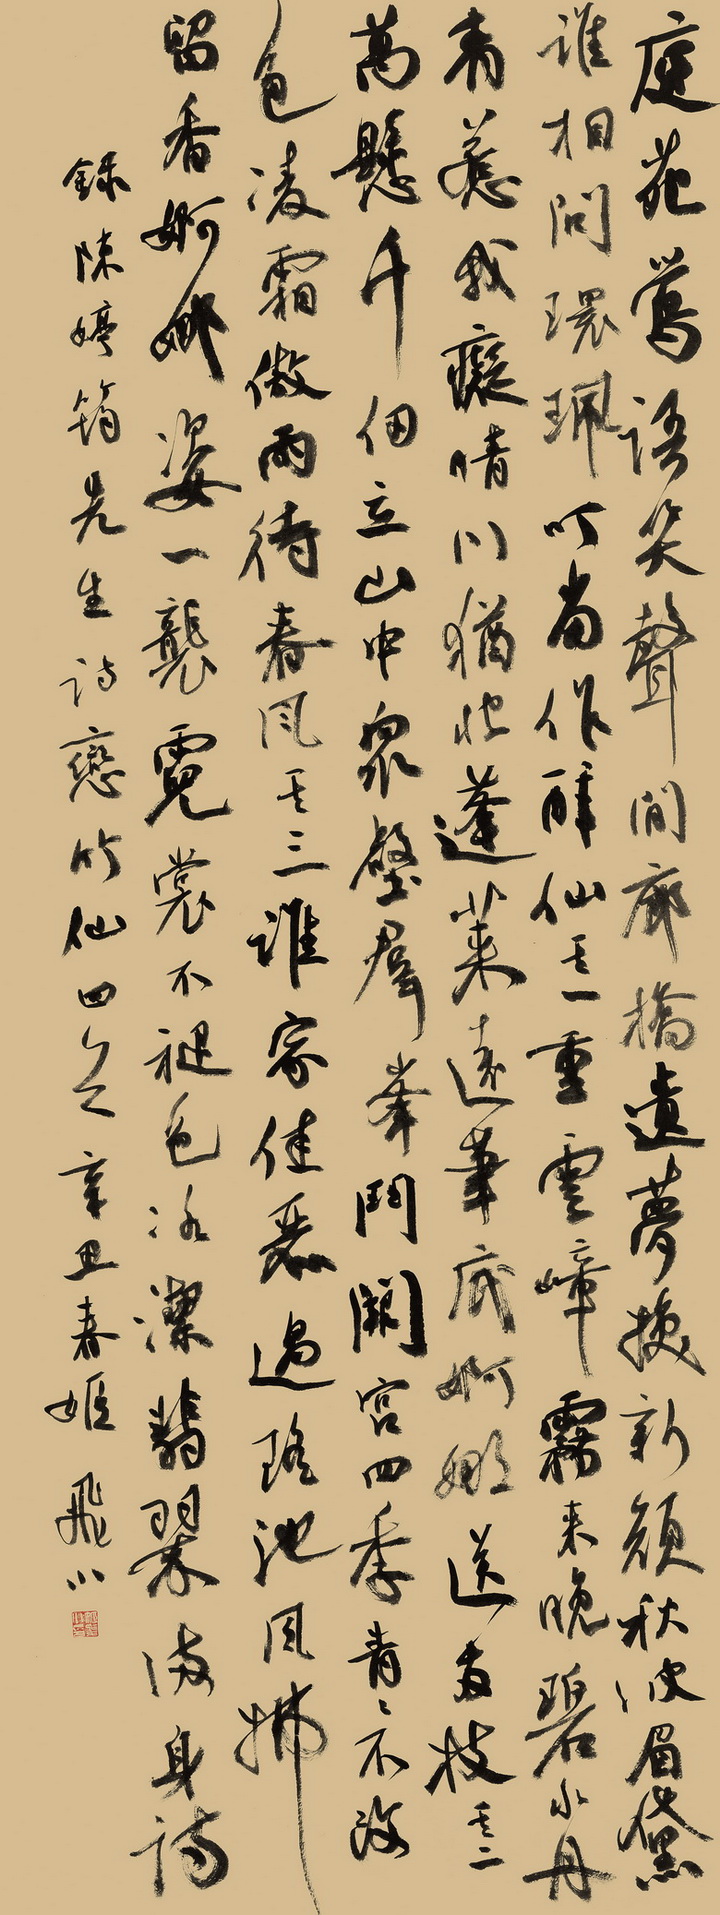 庭苑鶯語笑聲間廊橋遺夢換新顏秋波眉黛
誰相問環珮叮當作醉仙其一重雲嶂霧來晚碧水丹
青惹我癡晴川猶似蓬萊遠筆底婀娜送古枝其二
萬懸千仞立山中眾壑群峯鬥闕宮四季青青不改
色凌霜傲雨待春風其三誰家佳麗過瑤池風拂
留香婀娜姿一襲霓裳不褪色冰潔翡翠滿身詩
錄陳婷筠先生詩戀竹仙四首辛丑春姬飛小